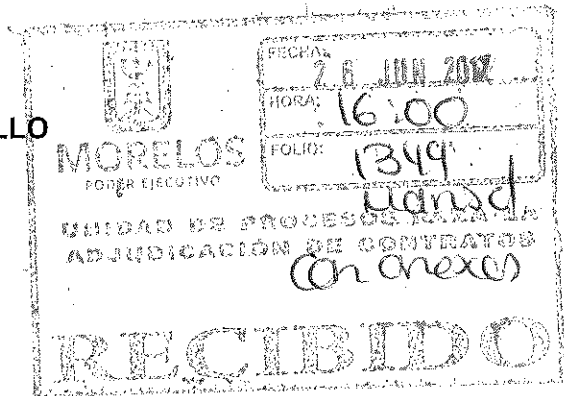 LLO
MORELOS
PODER EJECUTIVO
FECHA:
26 JUN 2017
HORA: 16:00
FOLIO: 1349
UNIDAD DE PROCESOS PARA LA
ADJUDICACIÓN DE CONTRATOS
Con anexos
RECIBIDO